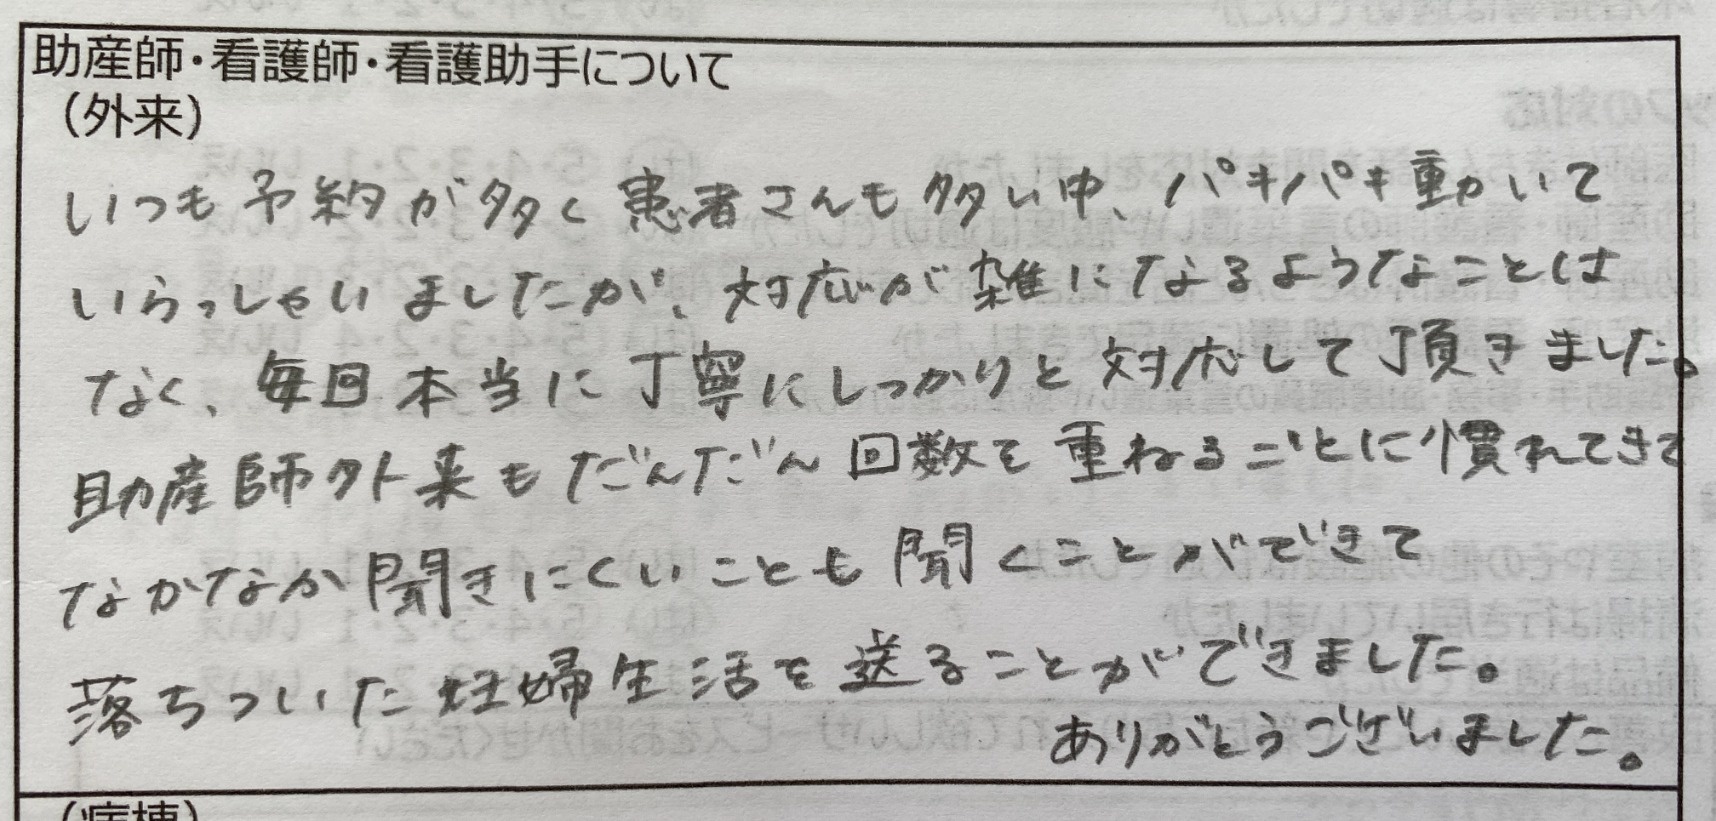 助産師・看護師・看護助手について
（外来）
いつも予約が多く患者さんも多い中、パキパキ動いて
いらっしゃいましたが、対応が雑になるようなことは
なく、毎回本当に丁寧にしっかりと対応して頂きました。
助産師外来もだんだん回数を重ねるごとに慣れてきて
なかなか聞きにくいことも聞くことができて
落ちついた妊婦生活を送ることができました。
ありがとうございました。
（病棟）